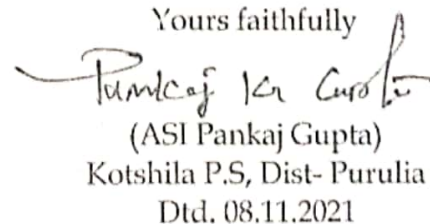 Yours faithfully
Pankaj Kr Gupta
(ASI Pankaj Gupta)
Kotshila P.S, Dist- Purulia
Dtd. 08.11.2021